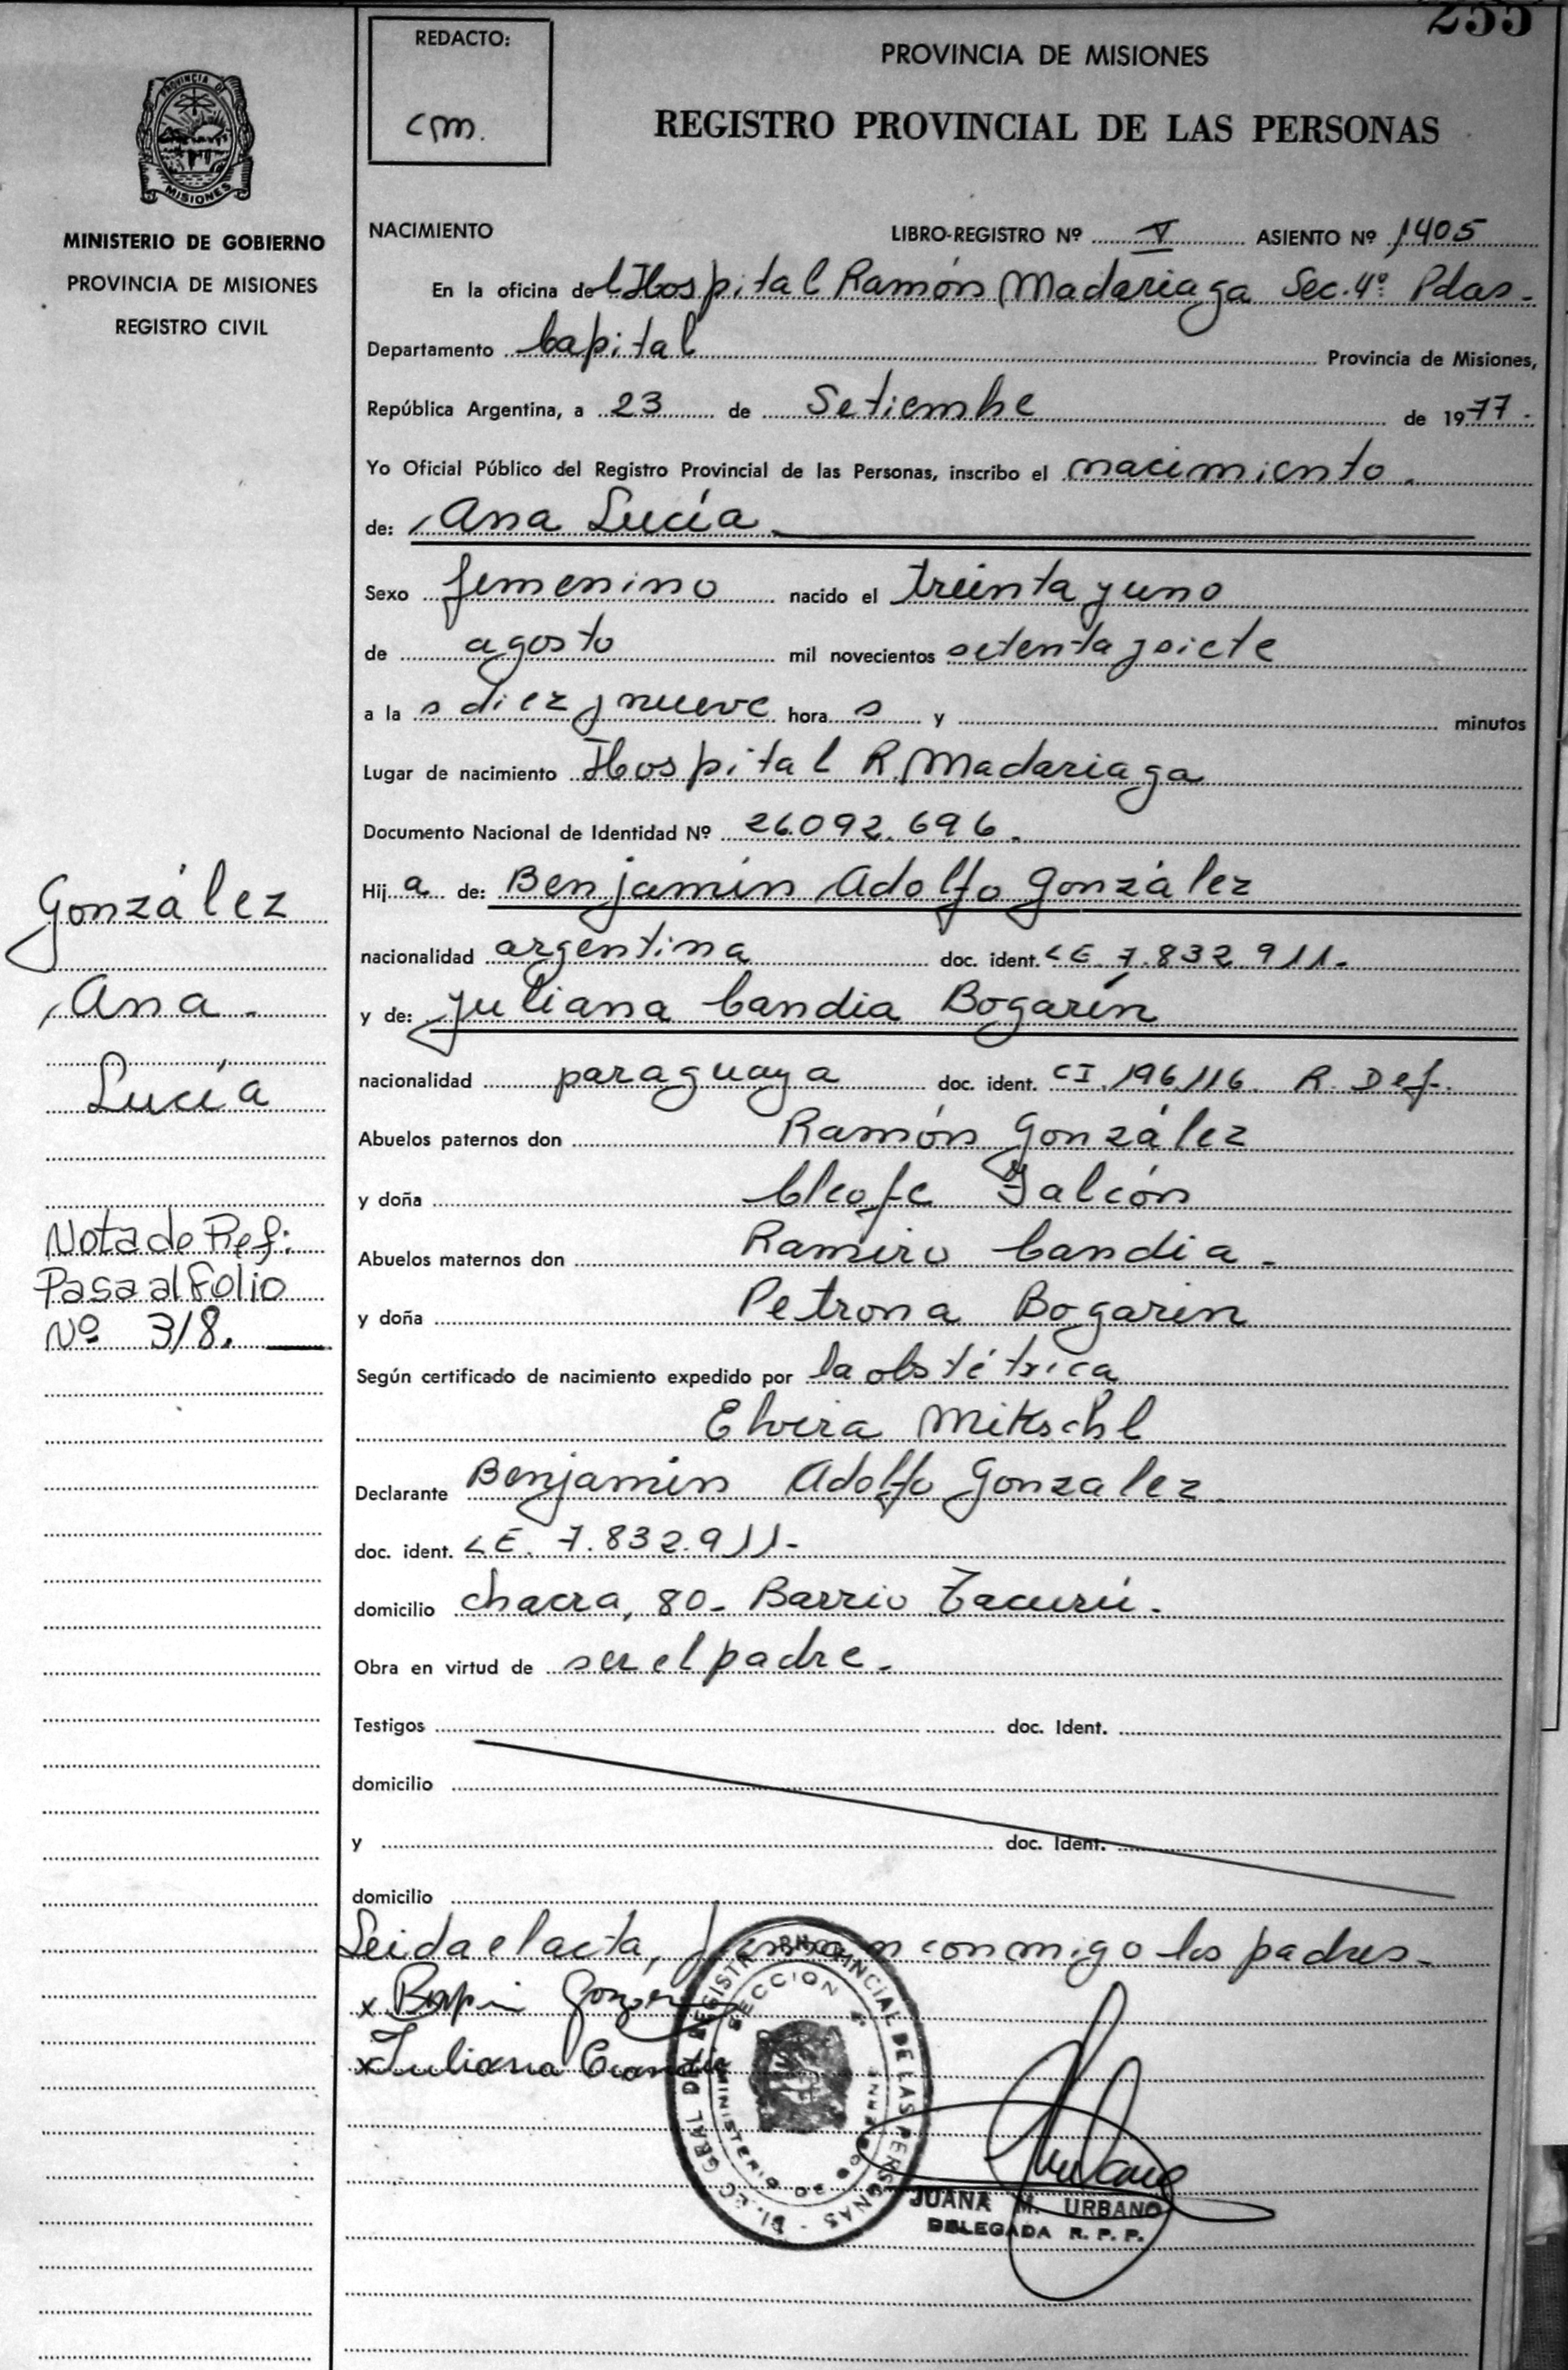 255
REDACTO:
cm.
PROVINCIA DE MISIONES
REGISTRO PROVINCIAL DE LAS PERSONAS
PROVINCIA DE
MISIONES
MINISTERIO DE GOBIERNO
PROVINCIA DE MISIONES
REGISTRO CIVIL
NACIMIENTO LIBRO-REGISTRO Nº V ASIENTO Nº 1405
En la oficina del Hospital Ramón Madariaga Sec. 4º Pdas-
Departamento Capital Provincia de Misiones,
República Argentina, a 23 de Setiembre de 1977.
Yo Oficial Público del Registro Provincial de las Personas, inscribo el nacimiento.
de: Ana Lucía
Sexo femenino nacido el treinta y uno
de agosto mil novecientos setenta y siete
a la s diez y nueve hora s y minutos
Lugar de nacimiento Hospital R. Madariaga
Documento Nacional de Identidad Nº 26.092.696.
Hij a de: Benjamín Adolfo González
nacionalidad argentina doc. ident. LE. 7.832.911.-
y de: Juliana Candia Bogarín
nacionalidad paraguaya doc. ident. CI. 196.116. R. Def.
Abuelos paternos don Ramón González
y doña Cleofe Falcón
Abuelos maternos don Ramiro Candia.-
y doña Petrona Bogarin
Según certificado de nacimiento expedido por la obstétrica
Elvira Mikschl
Declarante Benjamín Adolfo Gonzalez.
doc. ident. LE. 7.832.911-
domicilio chacra, 80- Barrio Tacurú.
Obra en virtud de ser el padre.
Testigos doc. Ident.
domicilio
y doc. Ident.
domicilio
Leida el acta, firman conmigo los padres.-
x González
x Juliana Candia
DIREC GRAL DEL REGISTRO PROVINCIAL DE LAS PERSONAS
SECCION 4
MINISTERIO DE GOBIERNO
JUANA M. URBANO
DELEGADA R. P. P.
González
Ana.
Lucía
Nota de Ref:
Pasa al Folio
Nº 318.